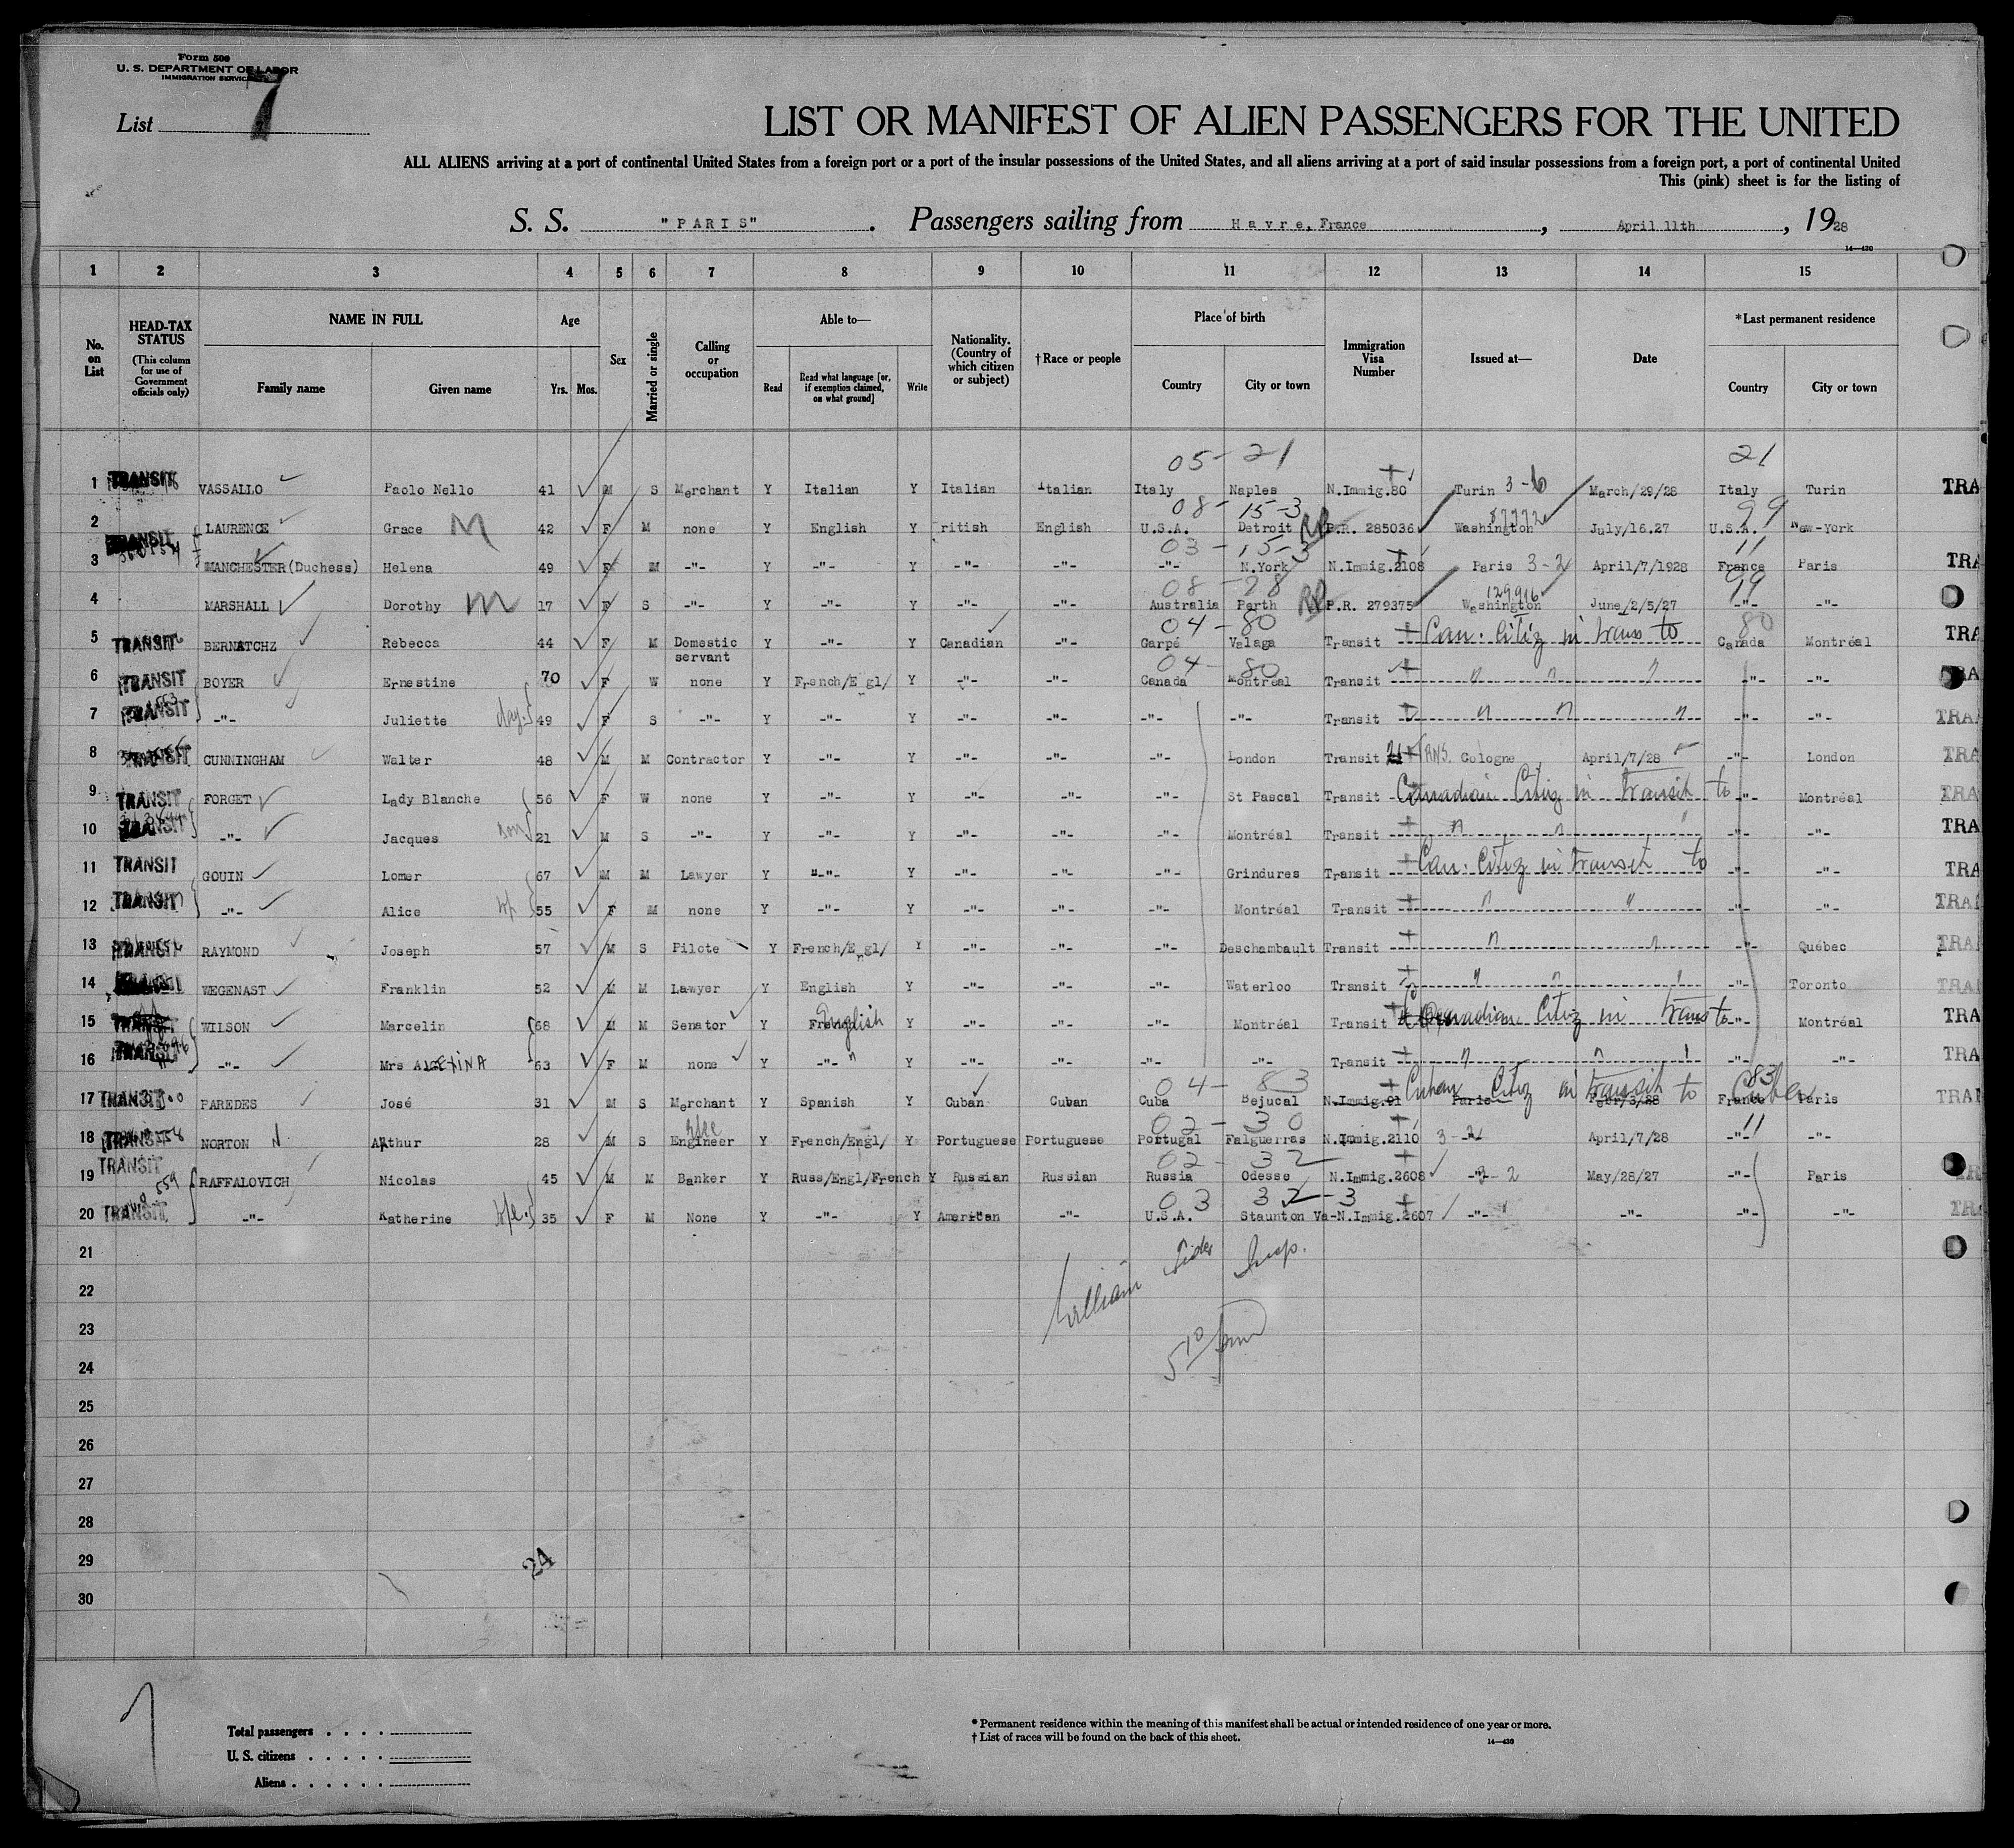 Form 500
U. S. DEPARTMENT OF LABOR
IMMIGRATION SERVICE
List 7
LIST OR MANIFEST OF ALIEN PASSENGERS FOR THE UNITED
ALL ALIENS arriving at a port of continental United States from a foreign port or a port of the insular possessions of the United States, and all aliens arriving at a port of said insular possessions from a foreign port, a port of continental United
This (pink) sheet is for the listing of
S. S. "PARIS". Passengers sailing from Havre, France, April 11th, 1928
14—430
1 2 3 4 5 6 7 8 9 10 11 12 13 14 15
No. on List
HEAD-TAX STATUS (This column for use of Government officials only)
NAME IN FULL Family name Given name
Age Yrs. Mos.
Sex
Married or single
Calling or occupation
Able to— Read Read what language [or, if exemption claimed, on what ground] Write
Nationality. (Country of which citizen or subject)
†Race or people
Place of birth Country City or town
Immigration Visa Number
Issued at—
Date
*Last permanent residence Country City or town
05-21 21
1 TRANSIT VASSALLO Paolo Nello 41 M S Merchant Y Italian Y Italian Italian Italy Naples N.Immig.80 Turin 3-6 March/29/28 Italy Turin TRA
08-15-3 99
2 LAURENCE Grace M 42 F M none Y English Y ritish English U.S.A. Detroit RP P.R. 285036 Washington July/16.27 U.S.A. New-York
TRANSIT 03-15-3 11
3 MANCHESTER(Duchess) Helena 49 F M -"- Y -"- Y -"- -"- -"- N.York N.Immig.2108 Paris 3-2 April/7/1928 France Paris TRA
08-28 129916 99
4 MARSHALL Dorothy M 17 F S -"- Y -"- Y -"- -"- Australia Perth RP P.R. 279375 Washington June/2/5/27 -"- -"-
04-80 80
5 TRANSIT BERNATCHZ Rebecca 44 F M Domestic servant Y -"- Y Canadian -"- Garpé Valaga Transit Can. Citiz in trans to Canada Montréal TRA
04-80
6 TRANSIT BOYER Ernestine 70 F W none Y French/Engl/ Y -"- -"- Canada Montréal Transit " " " -"- -"- RA
7 TRANSIT -"- Juliette 49 F S -"- Y -"- Y -"- -"- -"- -"- Transit " " " -"- -"- TRA
8 TRANSIT CUNNINGHAM Walter 48 M M Contractor Y -"- Y -"- -"- -"- London Transit Cologne April/7/28 -"- London TRA
9 TRANSIT FORGET Lady Blanche 56 F W none Y -"- Y -"- -"- -"- St Pascal Transit Canadian Citiz in transit to -"- Montréal TRA
10 TRANSIT -"- Jacques son 21 M S -"- Y -"- Y -"- -"- -"- Montréal Transit " " " -"- -"- TRA
11 TRANSIT GOUIN Lomer 67 M M Lawyer Y "-"- Y -"- -"- -"- Grindures Transit Can. Citiz in transit to -"- -"- TRA
12 TRANSIT -"- Alice wf. 55 F M none Y -"- Y -"- -"- -"- Montréal Transit " " -"- -"- TRA
13 TRANSIT RAYMOND Joseph 57 M S Pilote Y French/Engl/ Y -"- -"- -"- Deschambault Transit " " -"- Québec TRA
14 TRANSIT WEGENAST Franklin 52 M M Lawyer Y English Y -"- -"- -"- Waterloo Transit " " " -"- Toronto TRA
15 TRANSIT WILSON Marcelin 68 M M Senator Y French English Y -"- -"- -"- Montréal Transit Canadian Citiz in trans to -"- Montréal TRA
16 TRANSIT -"- Mrs ALEXINA 63 F M none Y -"- " Y -"- -"- -"- -"- Transit " " " -"- -"- TRA
04-83 83
17 TRANSIT PAREDES José 31 M S Merchant Y Spanish Y Cuban Cuban Cuba Bejucal N.Immig.91 Cuban Citiz in transit to Cuba Paris Febr/3/28 France Paris TRAN
02-30 11
18 TRANSIT NORTON Arthur 28 M S Engineer Y French/Engl/ Y Portuguese Portuguese Portugal Falguerras N.Immig.2110 3-2 -"- April/7/28 -"- -"-
02-32
19 TRANSIT RAFFALOVICH Nicolas 45 M M Banker Y Russ/Engl/French Y Russian Russian Russia Odesse N.Immig.2608 -"- 3-2 May/28/27 -"- Paris
03 32-3
20 TRANSIT -"- Katherine wfe. 35 F M None Y -"- Y American -"- U.S.A. Staunton Va-N.Immig.2607 -"- -"- -"- -"- TRA
21
William Insp.
22
23
5 10 pm
24
25
26
27
28
29 24
30
Total passengers . . . .
U. S. citizens . . . . .
Aliens . . . . . .
* Permanent residence within the meaning of this manifest shall be actual or intended residence of one year or more.
† List of races will be found on the back of this sheet.
14—430